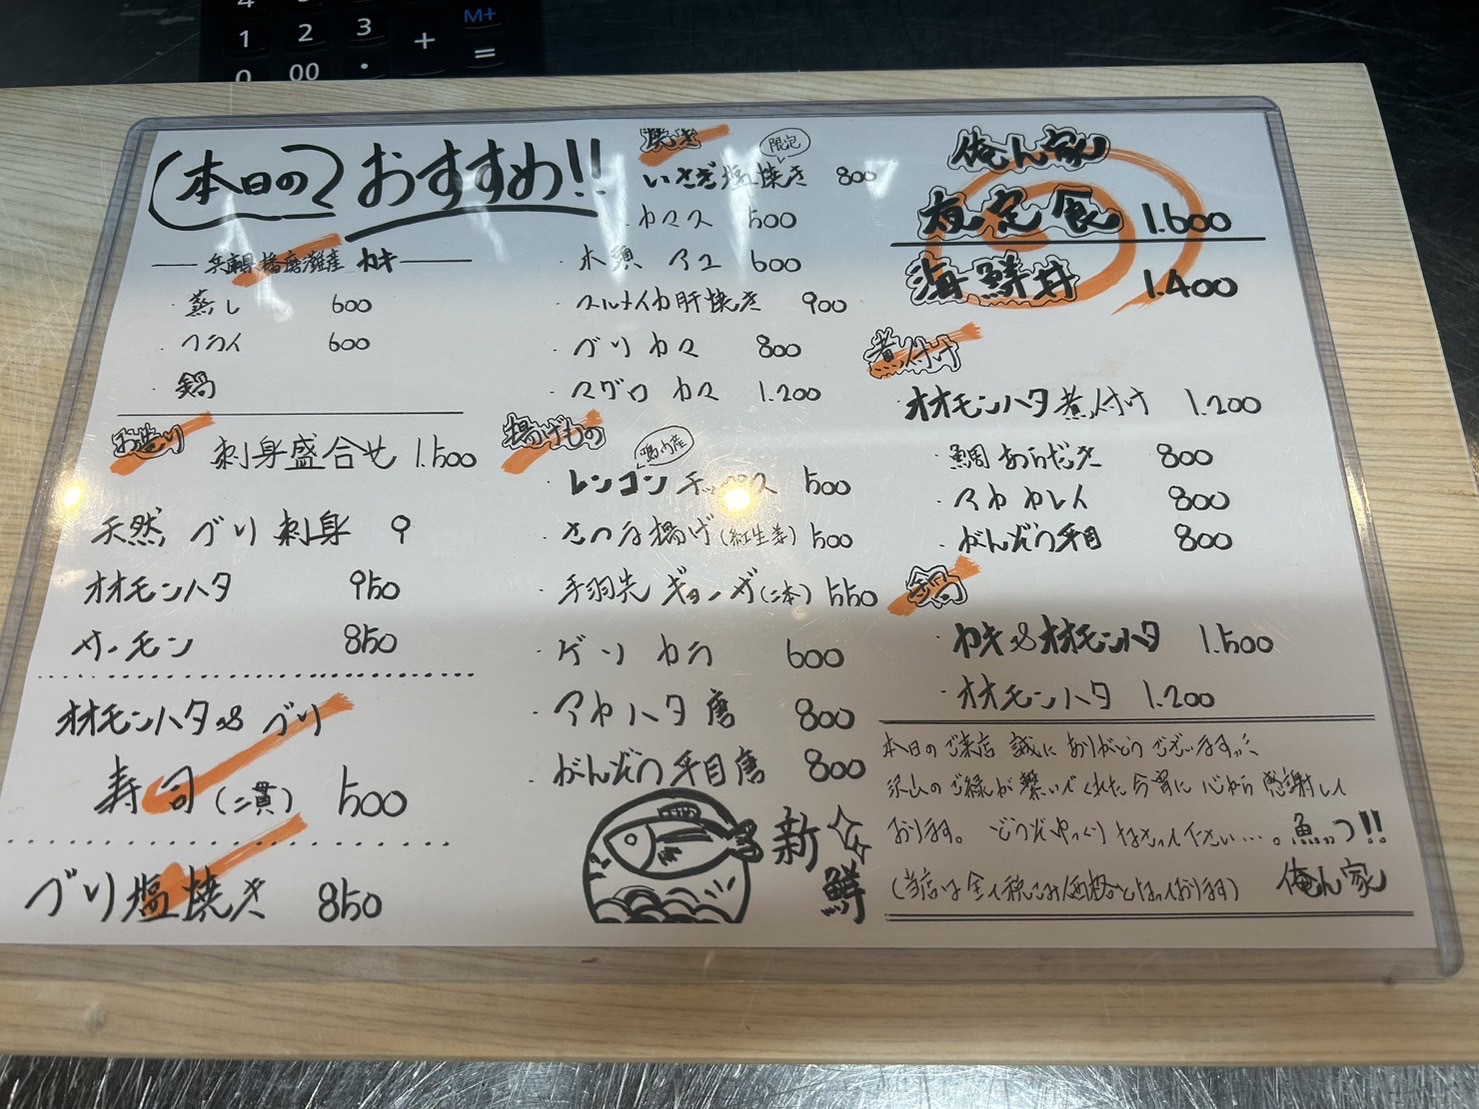 4
M+
1 2 3 + =
0 00 .
本日の おすすめ!!
兵庫県播磨灘産 カキ
・蒸し 600
・フライ 600
・鍋
お造り 刺身盛合せ 1.500
天然 ブリ 刺身 9
オオモンハタ 950
サーモン 850
オオモンハタ&ブリ
寿司(二貫) 500
ブリ塩焼き 850
焼き
限定
いさぎ塩焼き 800
・カマス 500
・木頭 アユ 600
・スルメイカ肝焼き 900
・ブリカマ 800
・マグロ カマ 1.200
揚げもの
鳴門産
・レンコン チップス 500
・さつま揚げ(紅生姜) 500
・手羽先 ギョーザ(二本) 550
・ゲソ カラ 600
・アカハタ唐 800
・がんぞう平目唐 800
新鮮
俺ん家
夜定食 1.600
海鮮丼 1.400
煮付け
オオモンハタ煮付け 1.200
・鯛あらだき 800
・アカガレイ 800
・がんぞう平目 800
鍋
・カキ&オオモンハタ 1.500
・オオモンハタ 1.200
本日のご来店 誠に ありがとう ございます
沢山のご縁が繋いでくれた今宵に心から感謝して
おります。どうぞゆっくりなさって下さい…。魚っ!!
(当店は全て税こみ価格となっております) 俺ん家